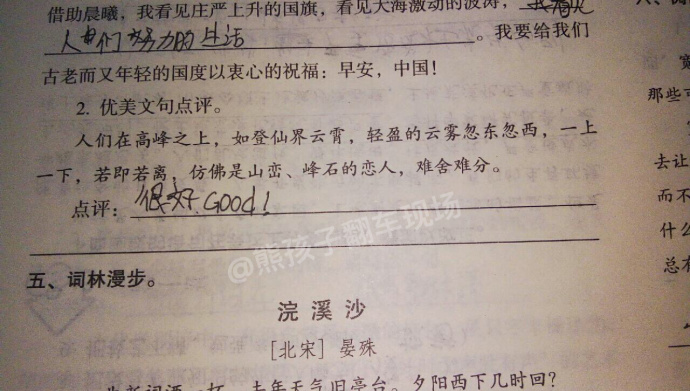 借助晨曦，我看见庄严上升的国旗，看见大海激动的波涛，我看见
人民们努力的生活。我要给我们
古老而又年轻的国度以衷心的祝福：早安，中国！
2. 优美文句点评。
人们在高峰之上，如登仙界云霄，轻盈的云雾忽东忽西，一上
一下，若即若离，仿佛是山峦、峰石的恋人，难舍难分。
点评：很好，GOOD！
@熊孩子翻车现场
五、词林漫步。
浣溪沙
[北宋] 晏殊
一曲新词酒一杯，去年天气旧亭台。夕阳西下几时回？
那些可
去让
而不
什么
总有